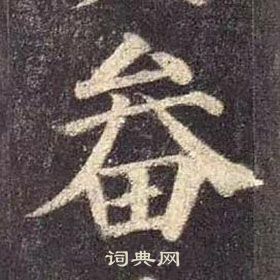 畚
词典网